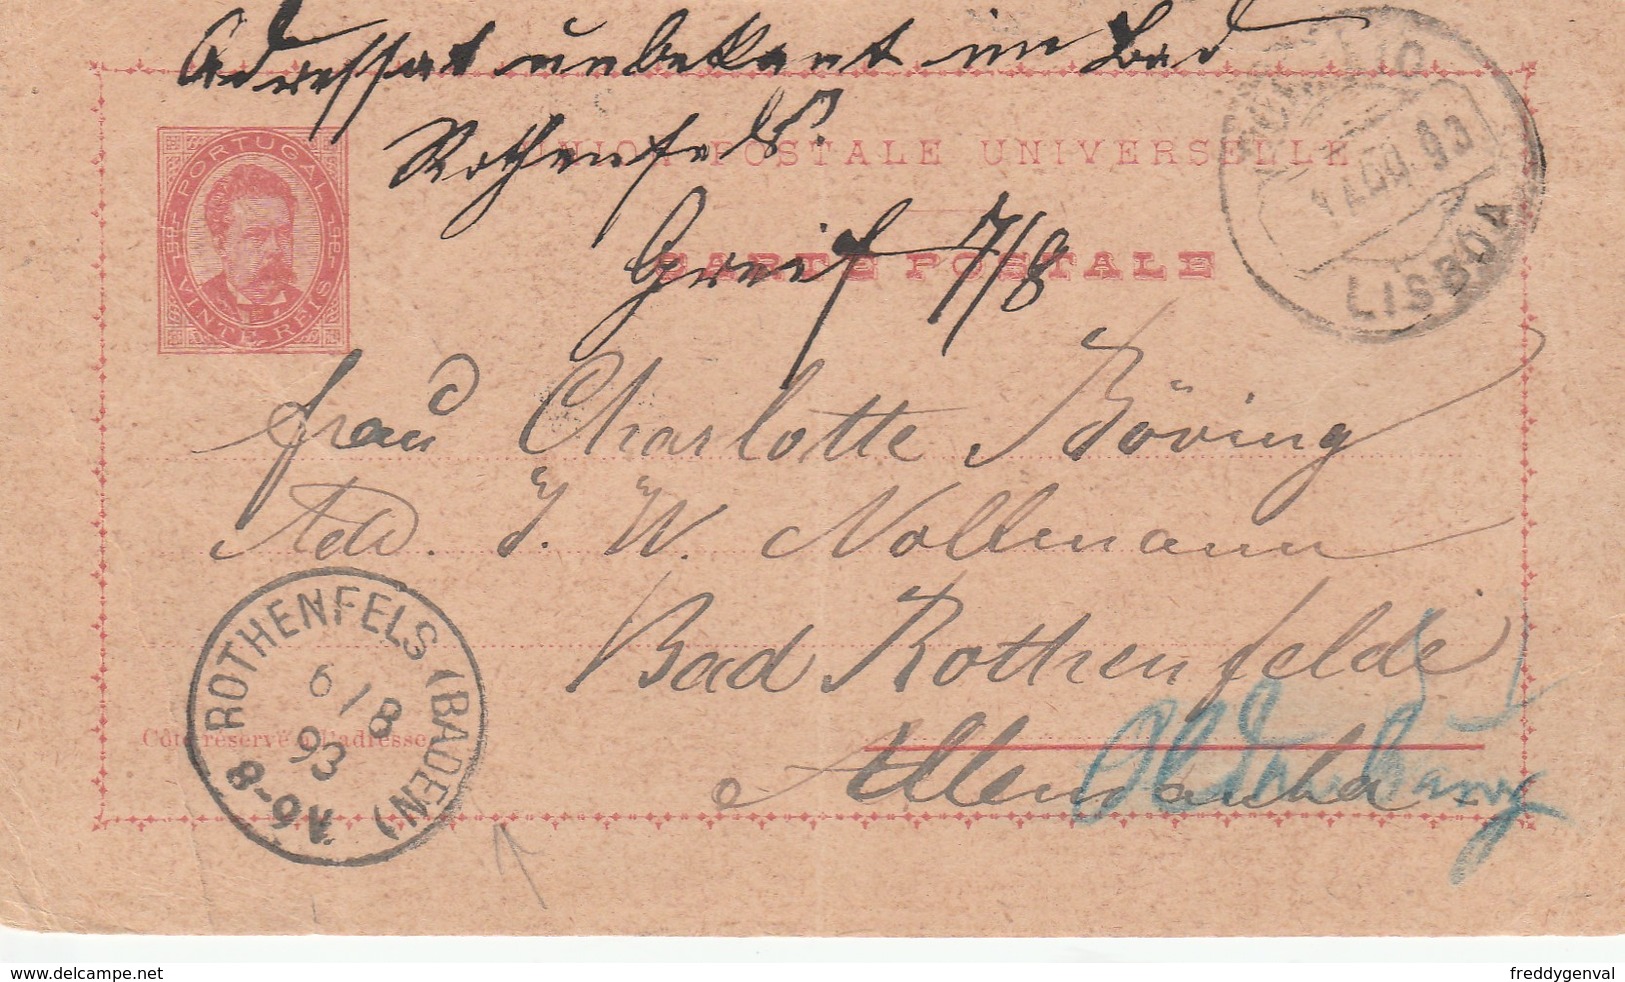 Adressat unbekant im Bad
Rothenfels.
Greif 7/8
UNION POSTALE UNIVERSELLE
CARTE POSTALE
PORTUGAL
VINTE REIS
1 AGO. 93
LISBOA
Frau Charlotte Böving
Adr. J. W. Nollmann
Bad Rothenfelde
Allemanha
Oldenburg
Côté réservé à l'adresse
ROTHENFELS (BADEN)
6/8
93
N6-8
delcampe.net
freddygenval